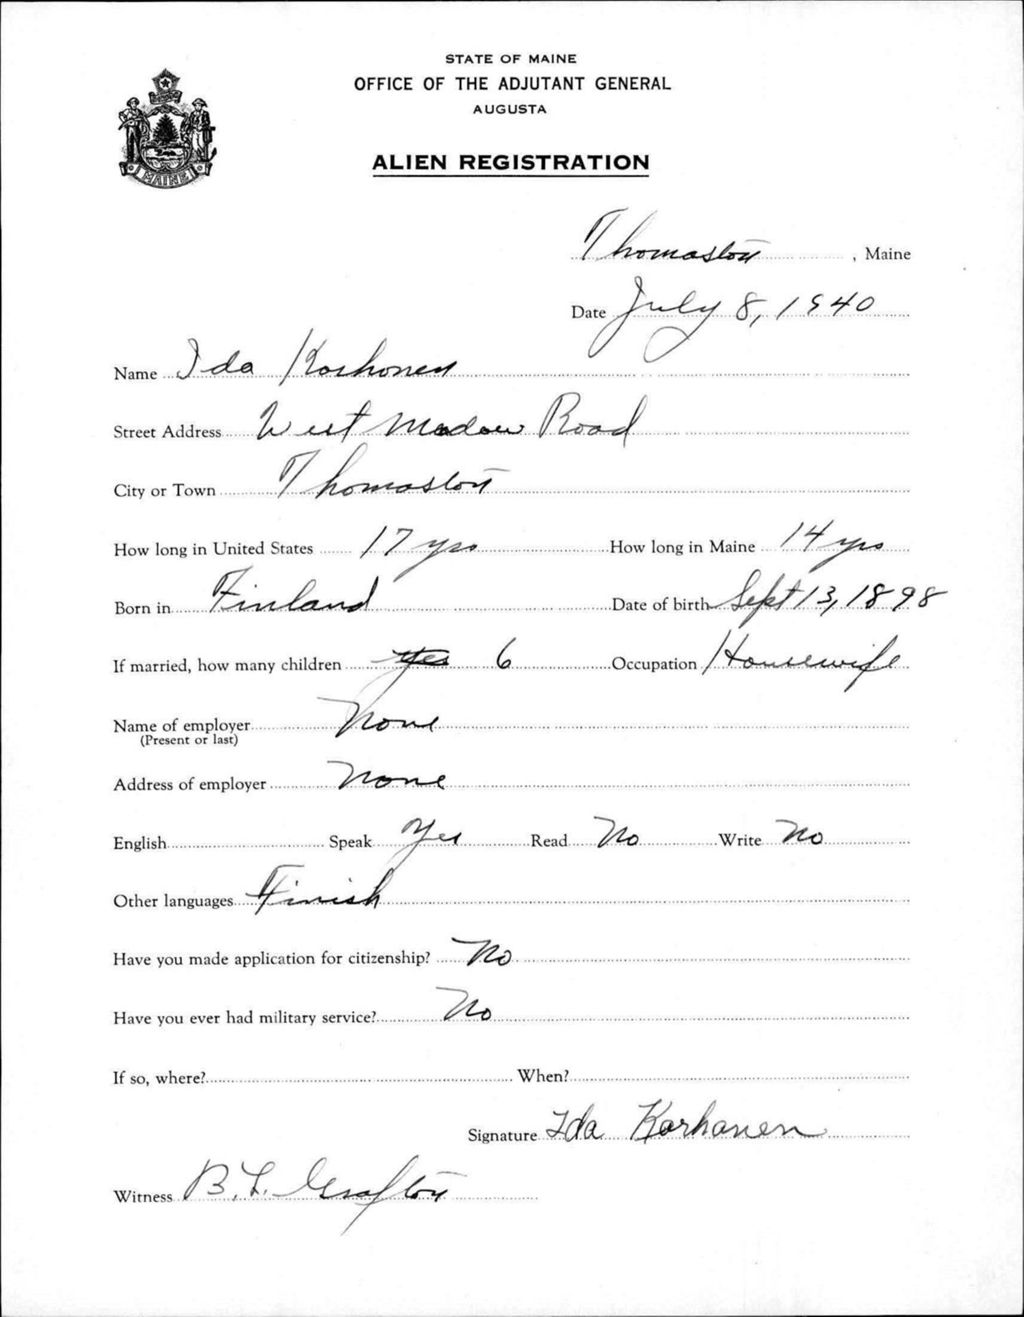 STATE OF MAINE
OFFICE OF THE ADJUTANT GENERAL
AUGUSTA
MAINE
ALIEN REGISTRATION
Thomaston, Maine
Date July 8, 1940
Name Ida Korhonen
Street Address West Meadow Road
City or Town Thomaston
How long in United States 17 yrs How long in Maine 14 yrs
Born in Finland Date of birth Sept 13, 1898
If married, how many children yes 6 Occupation Housewife
Name of employer None
(Present or last)
Address of employer None
English Speak Yes Read No Write No
Other languages Finish
Have you made application for citizenship? No
Have you ever had military service? No
If so, where? When?
Signature Ida Korhonen
Witness B. L. Grafton